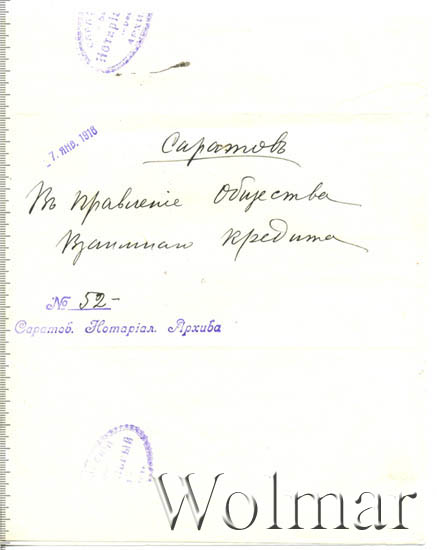 Нотаріа
Архи
7. ЯНВ. 1916
Саратовъ
Въ Правленіе Общества
Взаимнаго Кредита
№ 52-
Саратов. Нотаріал. Архива
Wolmar